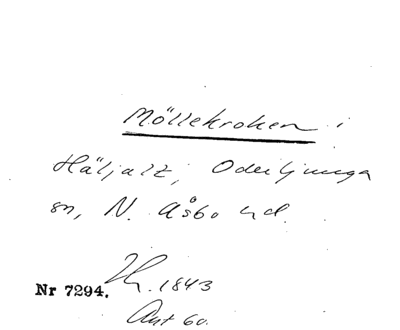 Möllekroken i
Häljalt, Oderljunga
sn, N. Åsbo hd.
Th. 1843
Nr 7294.
Ant 60.